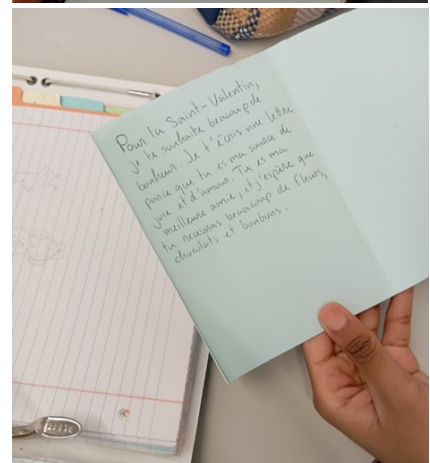 Pour la Saint-Valentin,
je te souhaite beaucoup de
bonheur. Je t'écris une lettre
parce que tu es ma source de
joie et d'amour. Tu es ma
meilleure amie, et j'espère que
tu recevras beaucoup de fleurs,
chocolats et bonbons.